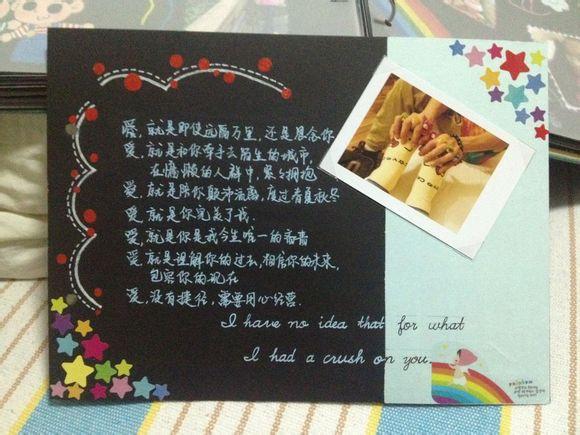 爱,就是即使远隔万里,还是思念你
爱,就是和你牵手去陌生的城市,
在慵懒的人群中,紧紧拥抱
爱,就是陪你颠沛流离,度过春夏秋冬
爱,就是你完美了我.
爱,就是你是我今生唯一的
爱,就是理解你的过去,相信你的未来,
包容你的现在
爱,没有捷径,需要用心经营.
I have no idea that for what
I had a crush on you.
rainbow